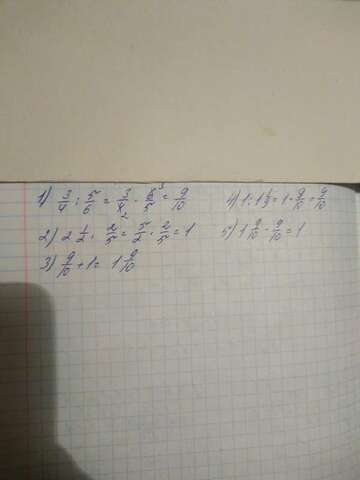 1) 3/4 : 5/6 = 3/4₂ · 6³/5 = 9/10
2) 2 1/2 · 2/5 = 5/2 · 2/5 = 1
3) 9/10 + 1 = 1 9/10
4) 1 : 1 1/9 = 1 · 9/10 = 9/10
5) 1 9/10 - 9/10 = 1